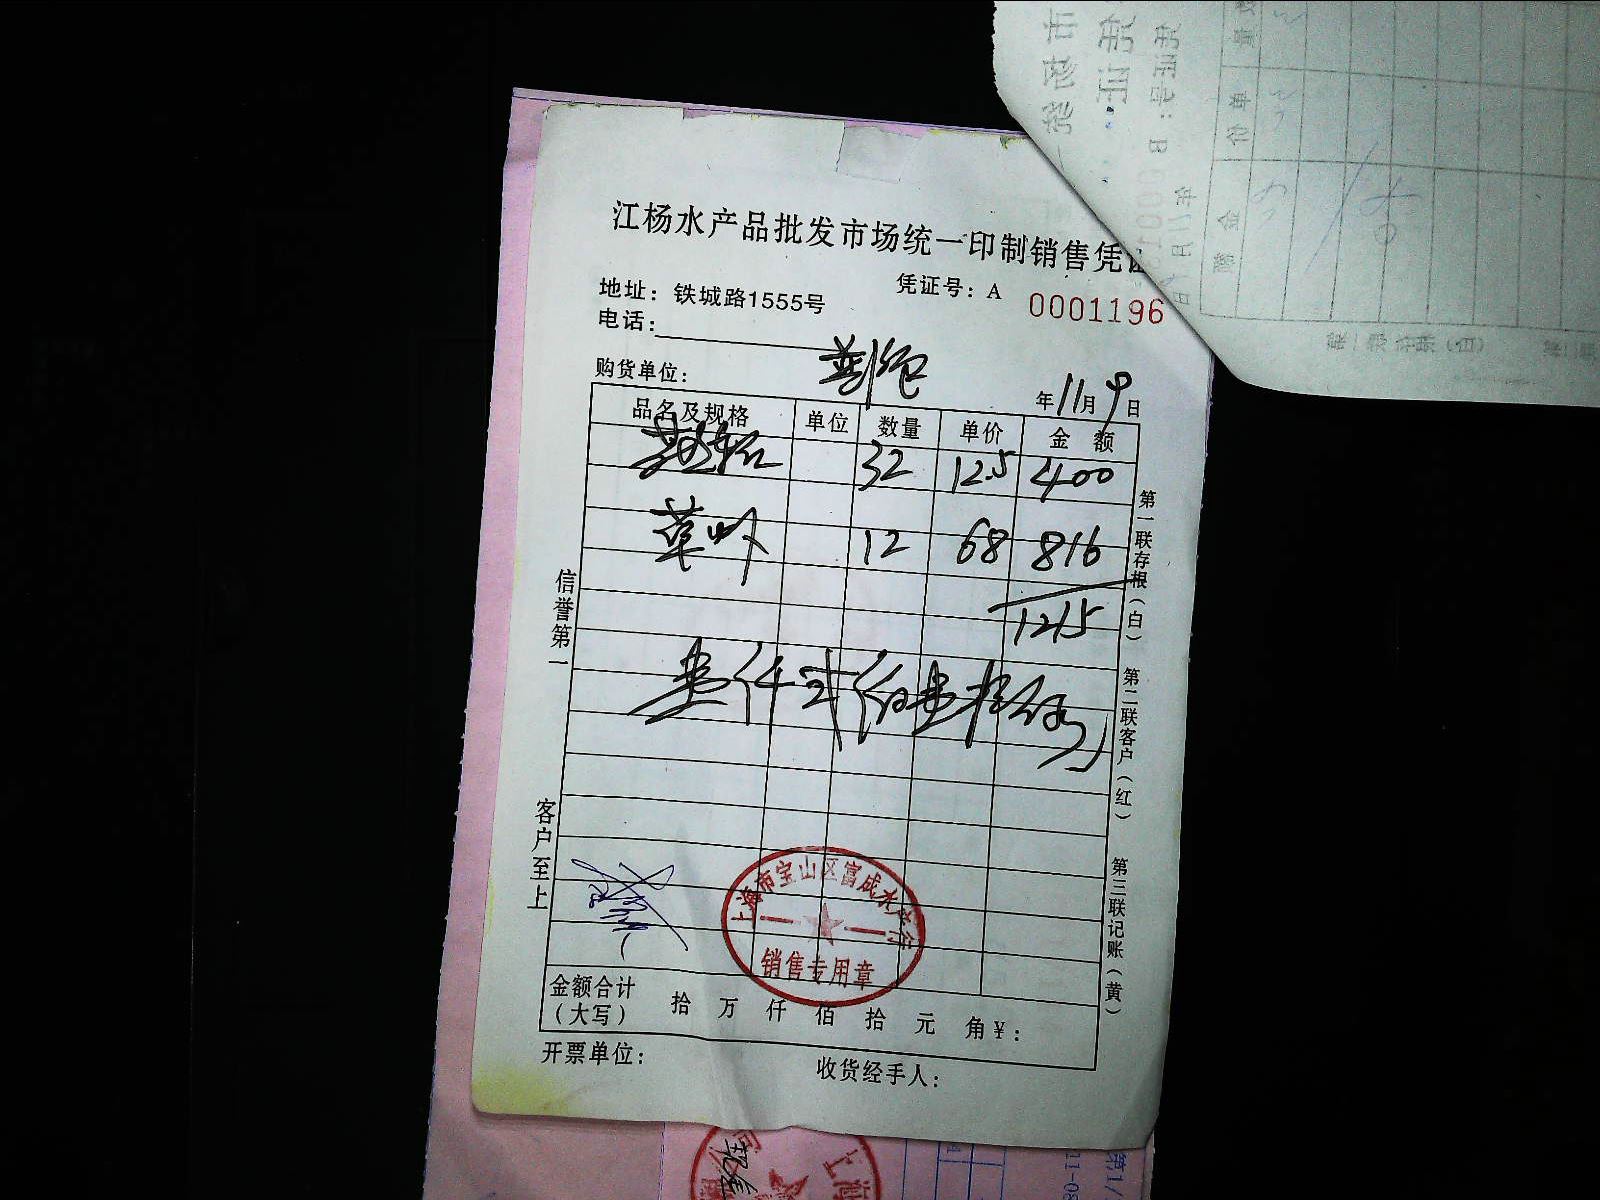 江杨水产品批发市场统一印制销售凭证
地址：铁城路1555号
凭证号：A 0001196
电话：
购货单位：
年11月9日
品名及规格 单位 数量 单价 金额
32 12.5 400
草虾 12 68 816
1215
壹仟弍佰壹拾伍
信誉第一
客户至上
第一联存根（白）
第二联客户（红）
第三联记账（黄）
上海市宝山区富成水产行
销售专用章
金额合计（大写） 拾 万 仟 佰 拾 元 角 ¥：
开票单位：
收货经手人：